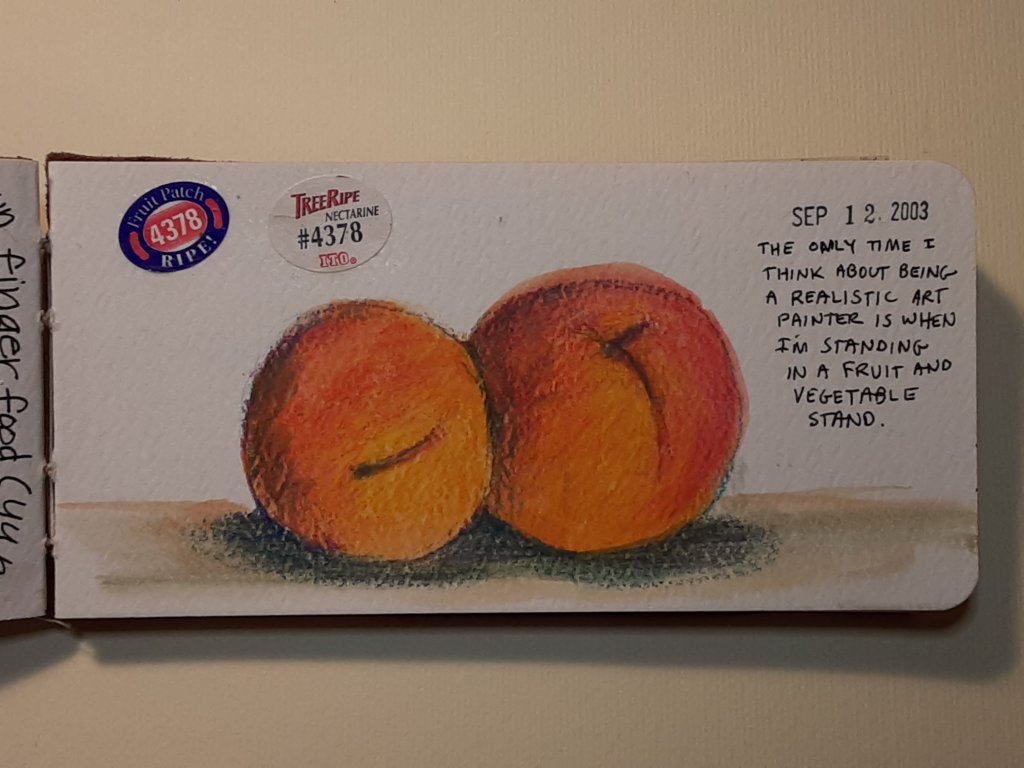 Fruit Patch
4378
RIPE!
TREERIPE
NECTARINE
#4378
ITO®
SEP 12. 2003
THE ONLY TIME I
THINK ABOUT BEING
A REALISTIC ART
PAINTER IS WHEN
I'M STANDING
IN A FRUIT AND
VEGETABLE
STAND.
finger food